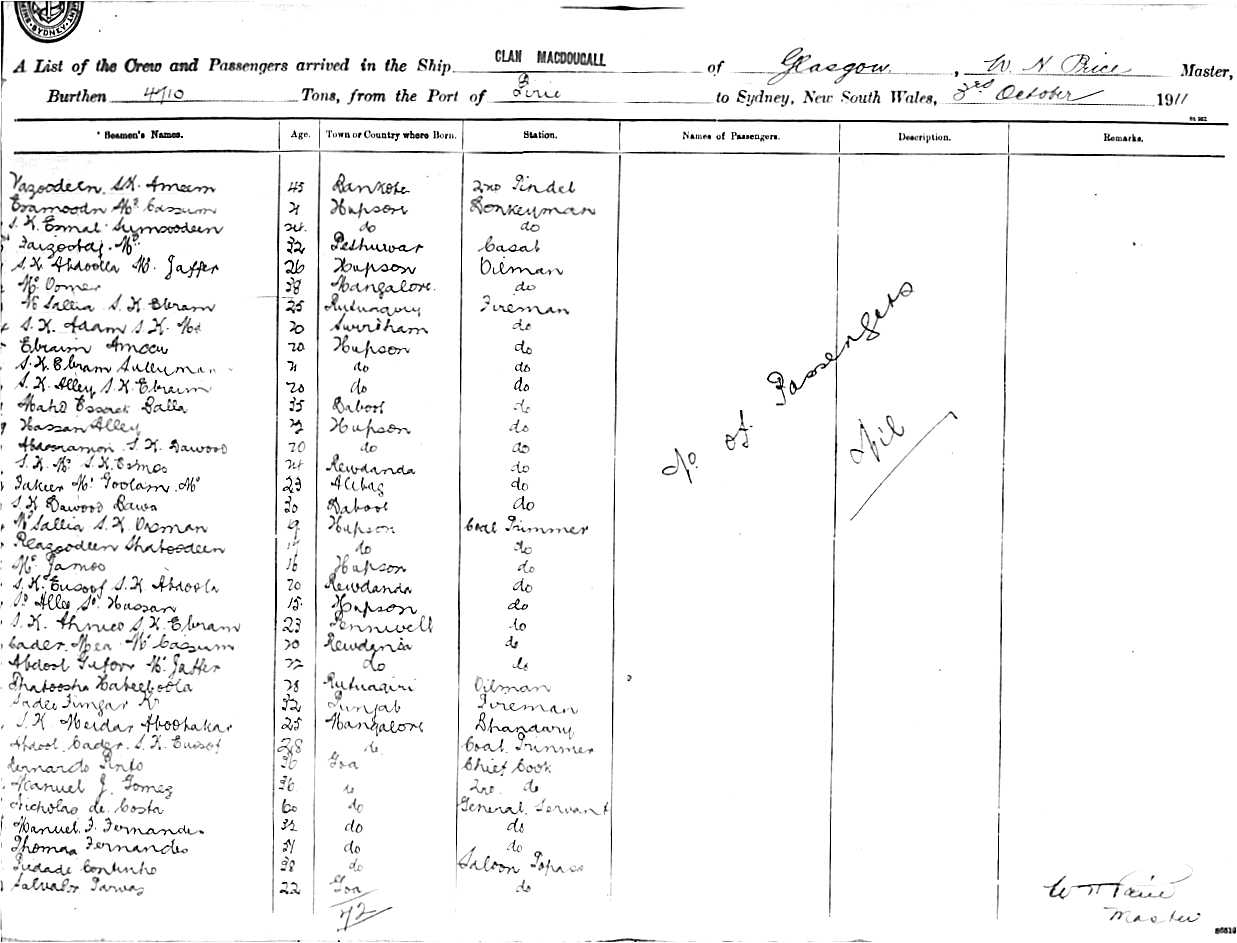 SYDNEY
A List of the Crew and Passengers arrived in the Ship CLAN MACDOUGALL of Glasgow, W. H. Price Master,
Burthen 4710 Tons, from the Port of Pirie to Sydney, New South Wales, 3rd October 1911
Seamen's Names. Age. Town or Country where Born. Station. Names of Passengers. Description. Remarks.
S.K. Ameem 45 2nd Tindel
Md. Cassum Hupson Donkeyman
S.K. Esmal Sumsoodeen do do
Md. 32 Peshuwar Casab
S.K. Abdoolla Md. Jaffer 26 Hupson Oilman
Md. Oomer 38 Mangalore. do
Md Sallia S.K. Ebram 25 Fireman
S.K. Adam S.K. Md 20 do
Ebraim Ameen 20 Hupson do
S.K. Ebram Suleyman do do
S.K. Alley S.K. Ebraim 20 do do
Mahd Essack Balla 35 Dabool do
Hassan Alley Hupson do
S.K. Dawood 20 do do
S.K. Md. S.K. Esmoo Rewdanda do
Fakeer Md. Goolam Md. 23 Alibag do
S.K. Dawood Bawa 30 Dabool do
Md. Sallia S.K. Oosman 19 Hupson Coal Trimmer
Shaboodeen do do
Md. Jamoo 16 Hupson do
S.K. Eusoof S.K. Abdoola 20 Rewdanda do
Allee Hassan 15 Hupson do
S.K. Ahmed S.K. Ebram 23 do
Cader Mea Md. Cassum 20 do
Abdool Gufoor Md. Jaffer 22 do do
Habeeboola 28 Rutnagiri Oilman
32 Punjab Fireman
S.K. Meidar Aboobakar 25 Mangalore Bhandary
Abdool Cader S.K. Eusoof 28 do Coal Trimmer
Bernardo Pinto 36 Goa Chief Cook
Manuel J. Gomez 36 do 2nd do
Nicholas de Costa 60 do General Servant
Manuel F. Fernandes 32 do do
Thomas Fernandes do do
Piedade Continho 38 do Saloon Topass
Salvador 22 Goa do
72
No. of Passengers
Nil
W H Price
Master